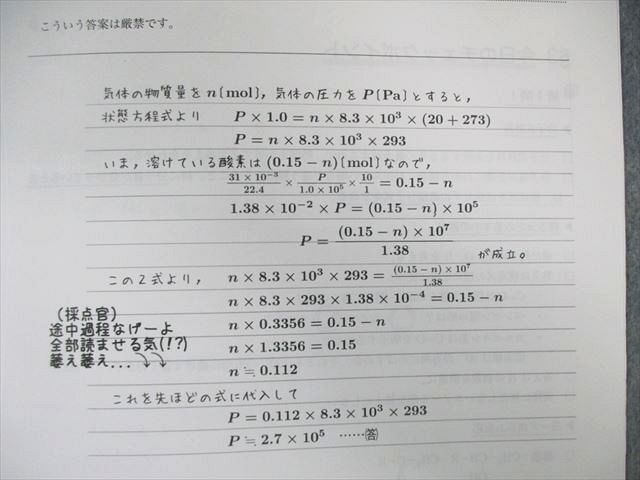 こういう答案は厳禁です。
気体の物質量を n〔mol〕, 気体の圧力を P〔Pa〕とすると,
状態方程式より P × 1.0 = n × 8.3 × 10³ × (20 + 273)
P = n × 8.3 × 10³ × 293
いま, 溶けている酸素は (0.15 − n)〔mol〕なので,
31 × 10⁻³/22.4 × P/1.0 × 10⁵ × 10/1 = 0.15 − n
1.38 × 10⁻² × P = (0.15 − n) × 10⁵
P = (0.15 − n) × 10⁷/1.38 が成立。
この2式より, n × 8.3 × 10³ × 293 = (0.15 − n) × 10⁷/1.38
n × 8.3 × 293 × 1.38 × 10⁻⁴ = 0.15 − n
n × 0.3356 = 0.15 − n
n × 1.3356 = 0.15
n ≒ 0.112
(採点官)
途中過程なげーよ
全部読ませる気(!?)
萎え萎え...
これを先ほどの式に代入して
P = 0.112 × 8.3 × 10³ × 293
P ≒ 2.7 × 10⁵ ……㊎